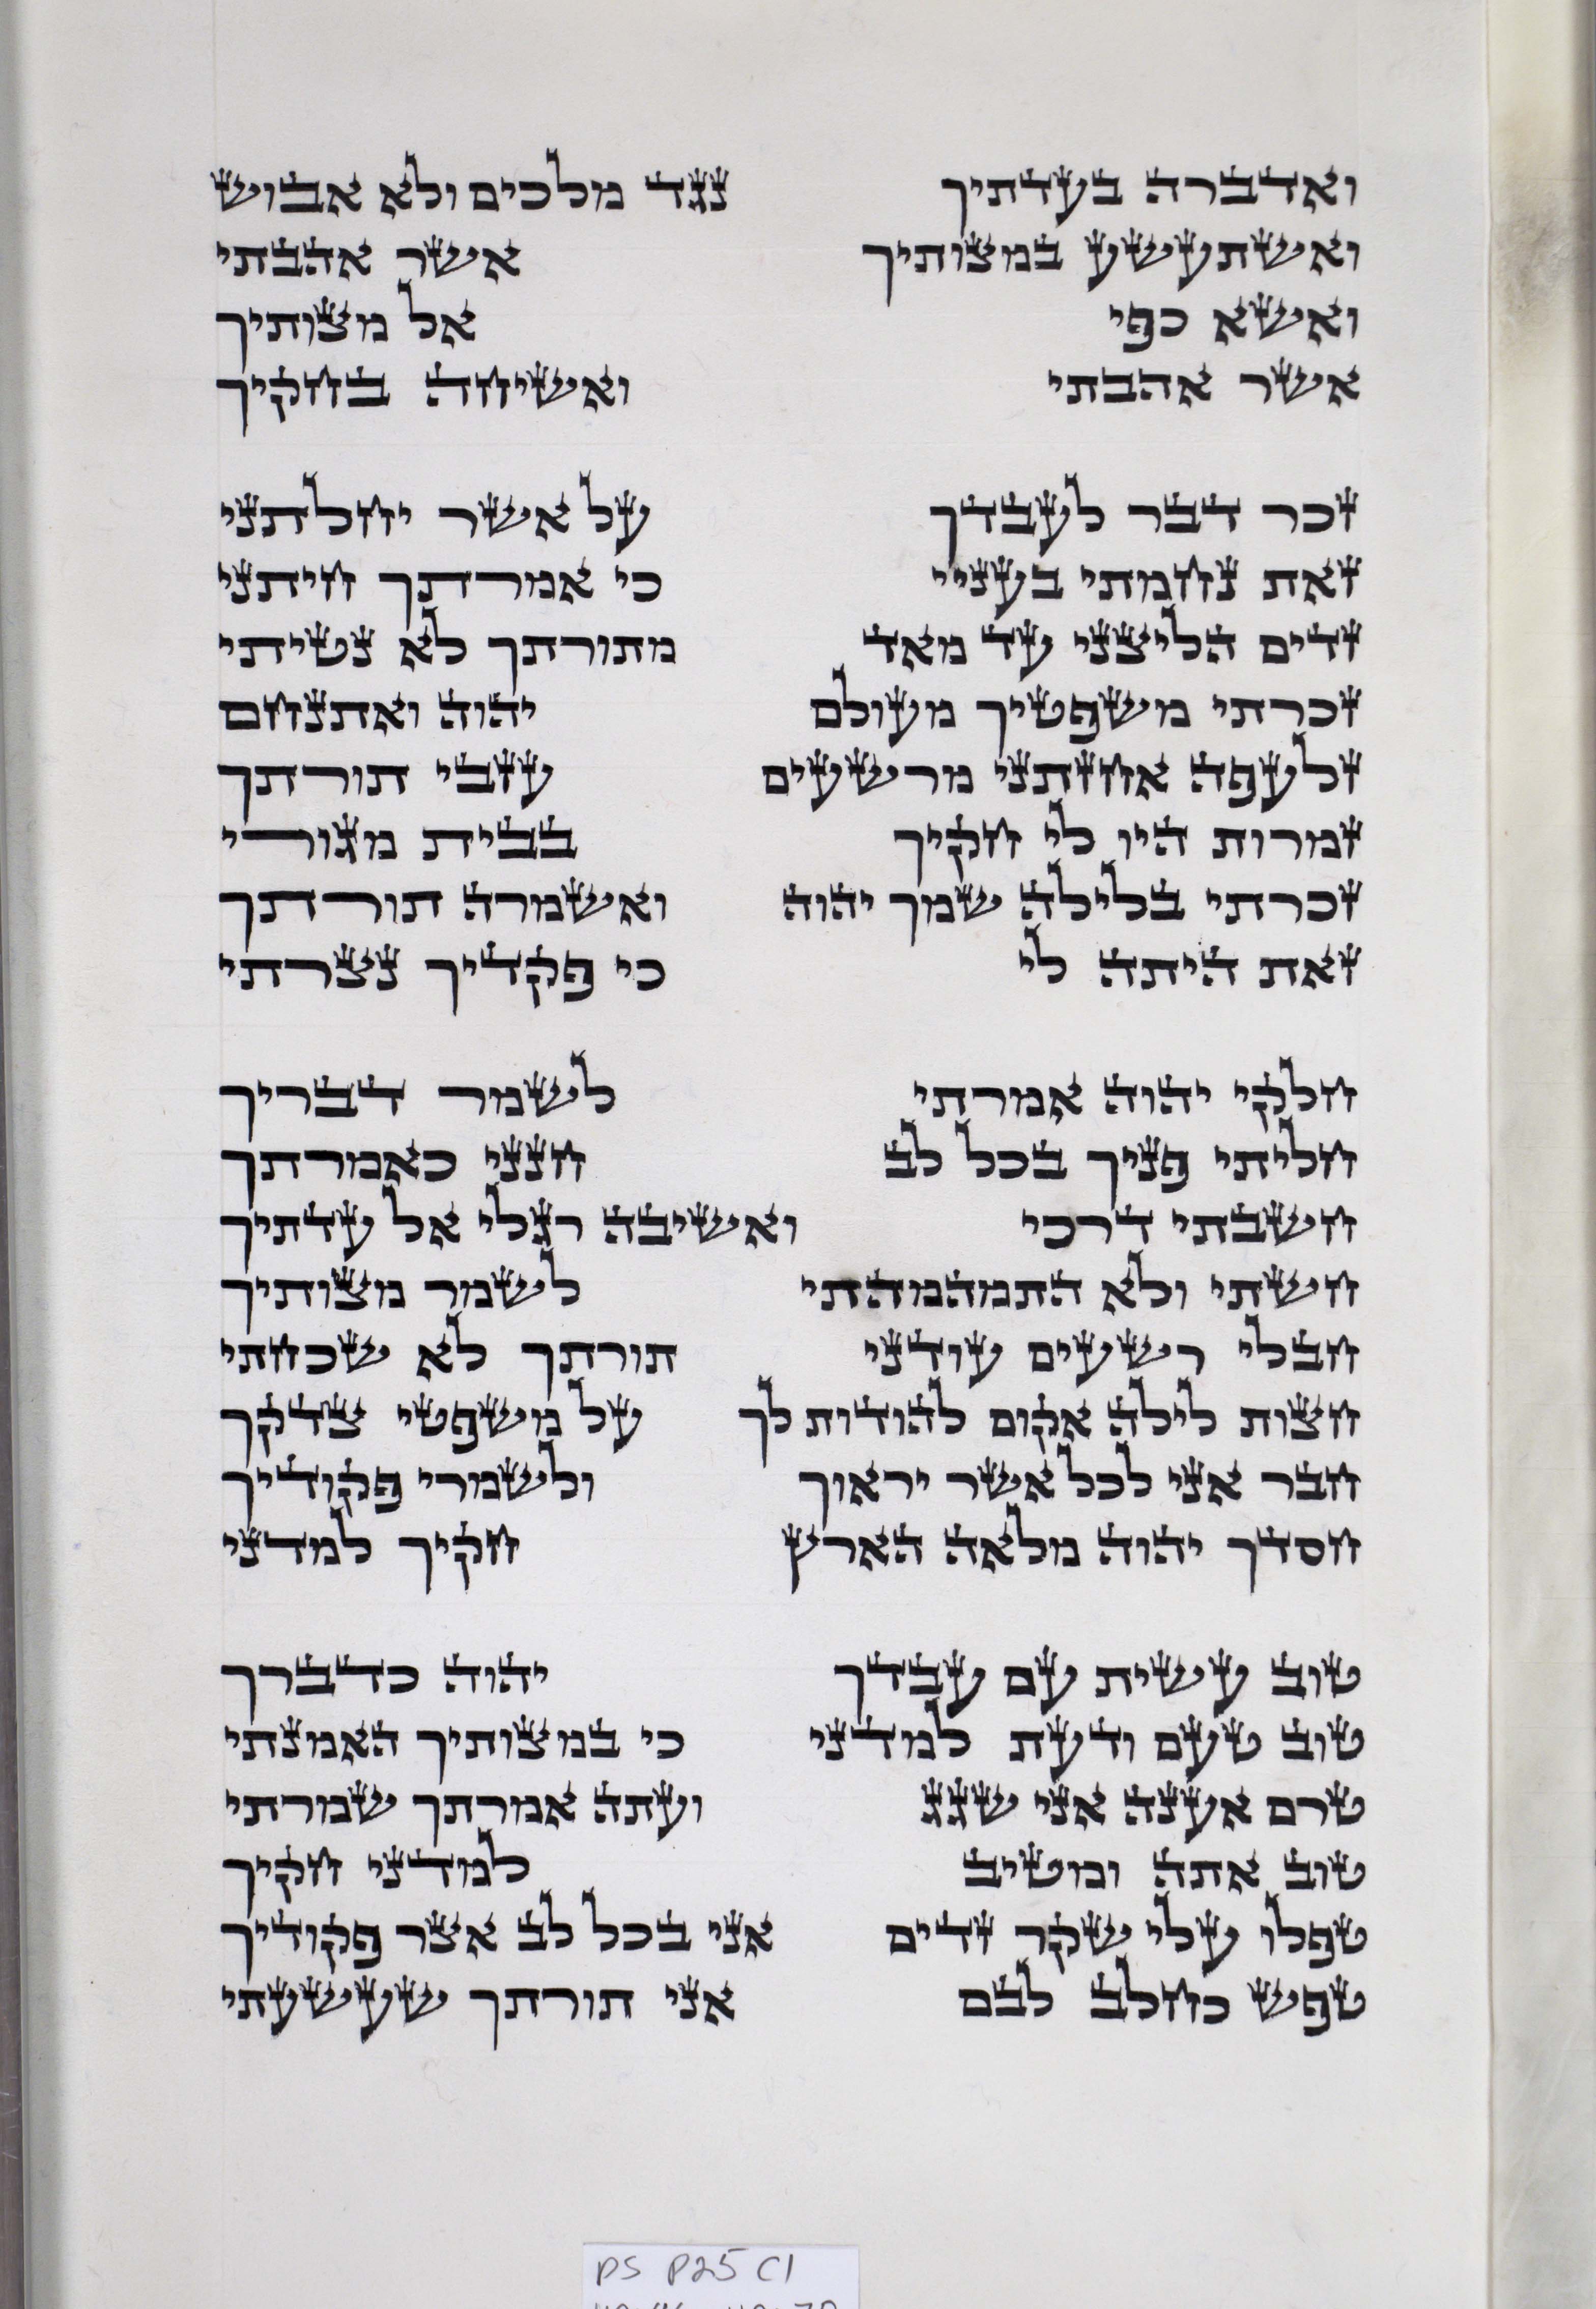 ואדברה בעדתיך נגד מלכים ולא אבוש
ואשתעשע במצותיך אשר אהבתי
ואשא כפי אל מצותיך
אשר אהבתי ואשיחה בחקיך
זכר דבר לעבדך על אשר יחלתני
זאת נחמתי בעניי כי אמרתך חיתני
זדים הליצני עד מאד מתורתך לא נטיתי
זכרתי משפטיך מעולם יהוה ואתנחם
זלעפה אחזתני מרשעים עזבי תורתך
זמרות היו לי חקיך בבית מגורי
זכרתי בלילה שמך יהוה ואשמרה תורתך
זאת היתה לי כי פקדיך נצרתי
חלקי יהוה אמרתי לשמר דבריך
חליתי פניך בכל לב חנני כאמרתך
חשבתי דרכי ואשיבה רגלי אל עדתיך
חשתי ולא התמהמהתי לשמר מצותיך
חבלי רשעים עודני תורתך לא שכחתי
חצות לילה אקום להודות לך על משפטי צדקך
חבר אני לכל אשר יראוך ולשמרי פקודיך
חסדך יהוה מלאה הארץ חקיך למדני
טוב עשית עם עבדך יהוה כדברך
טוב טעם ודעת למדני כי במצותיך האמנתי
טרם אענה אני שגג ועתה אמרתך שמרתי
טוב אתה ומטיב למדני חקיך
טפלו עלי שקר זדים אני בכל לב אצר פקודיך
טפש כחלב לבם אני תורתך שעשעתי
PS P25 C1